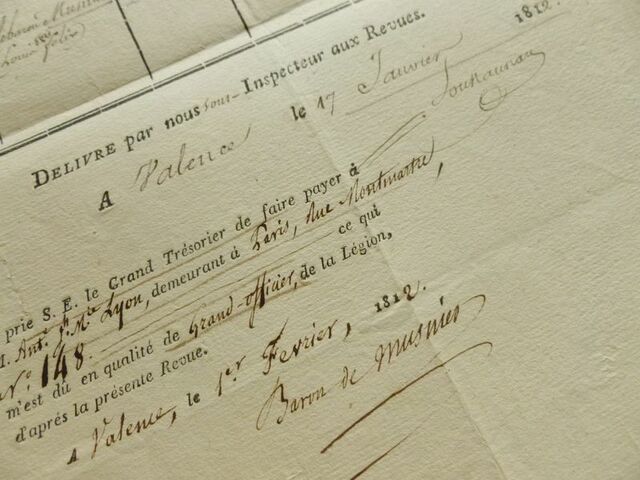 Louis felix
DELIVRÉ par nous sous-Inspecteur aux Revues.
A Valence le 17 Janvier 1812.
prie S. E. le Grand Trésorier de faire payer à
M. Ant.e Lyon, demeurant à Paris, Rue Montmartre,
N.o 148. ce qui
m'est dû en qualité de Grand-officier, de la Légion,
d'après la présente Revue.
A Valence, le 1er Fevrier, 1812.
Baron de Musnier